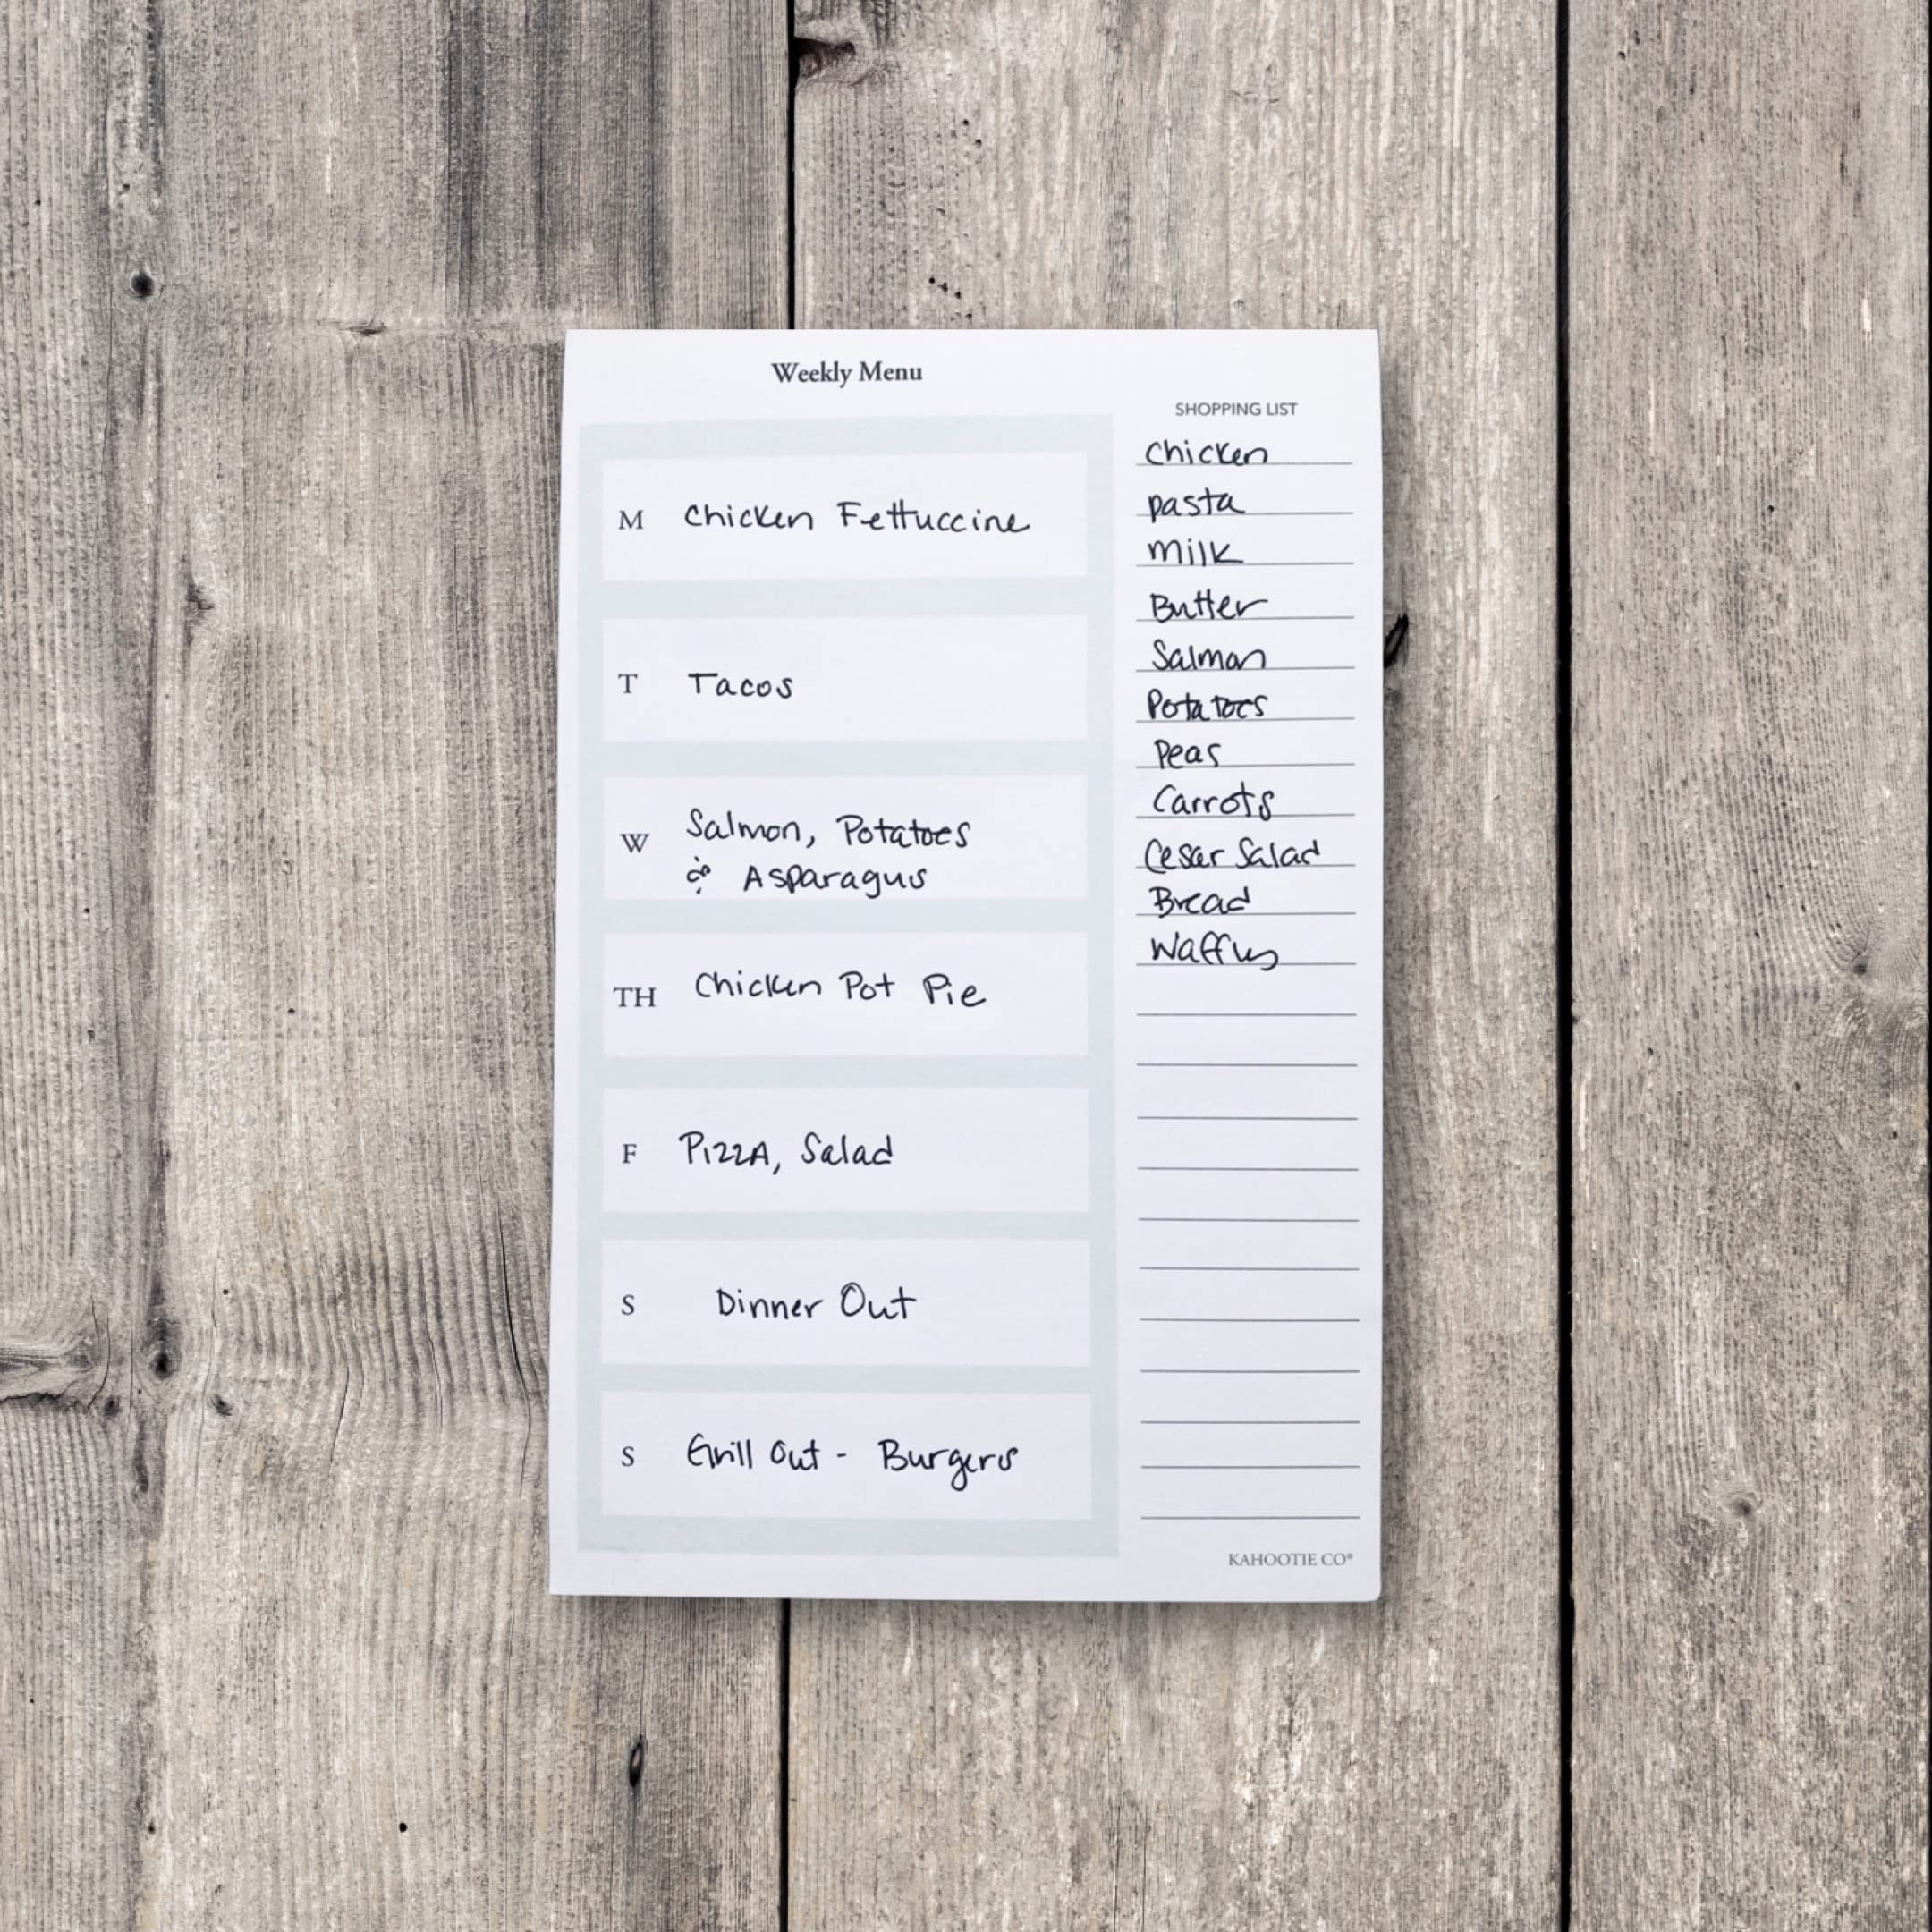 Weekly Menu
M Chicken Fettuccine
T Tacos
W Salmon, Potatoes
& Asparagus
TH Chicken Pot Pie
F PIZZA, Salad
S Dinner Out
S Grill Out - Burgers
SHOPPING LIST
Chicken
pasta
milk
Butter
Salmon
Potatoes
Peas
Carrots
Cesar Salad
Bread
Waffles
KAHOOTIE CO®